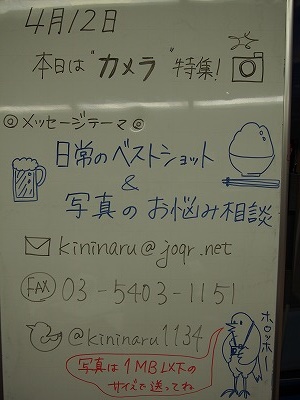 4月12日
本日は"カメラ"特集!
◎メッセージテーマ◎
日常のベストショット
&
写真のお悩み相談
kininaru@joqr.net
FAX 03-5403-1151
@kininaru1134
ホロッホー
写真は1MB以下の
サイズで送ってね